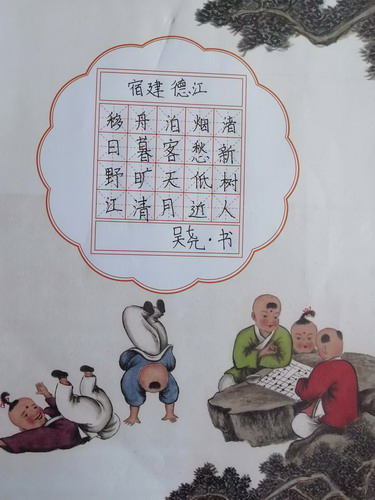 宿建德江
移舟泊烟渚
日暮客愁新
野旷天低树
江清月近人
吴尧·书